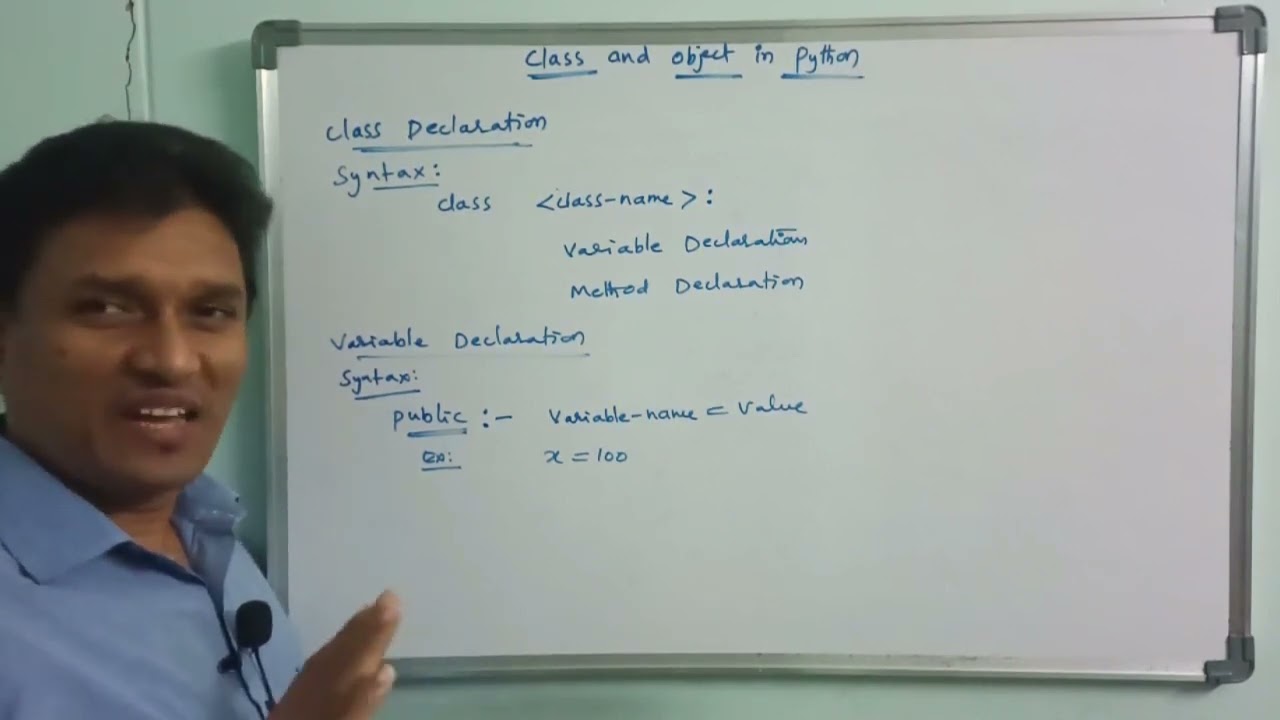 Class and object in Python
Class Declaration
Syntax:
class <class-name>:
Variable Declaration
Method Declaration
Variable Declaration
Syntax:
public :- Variable-name = Value
Ex: x = 100